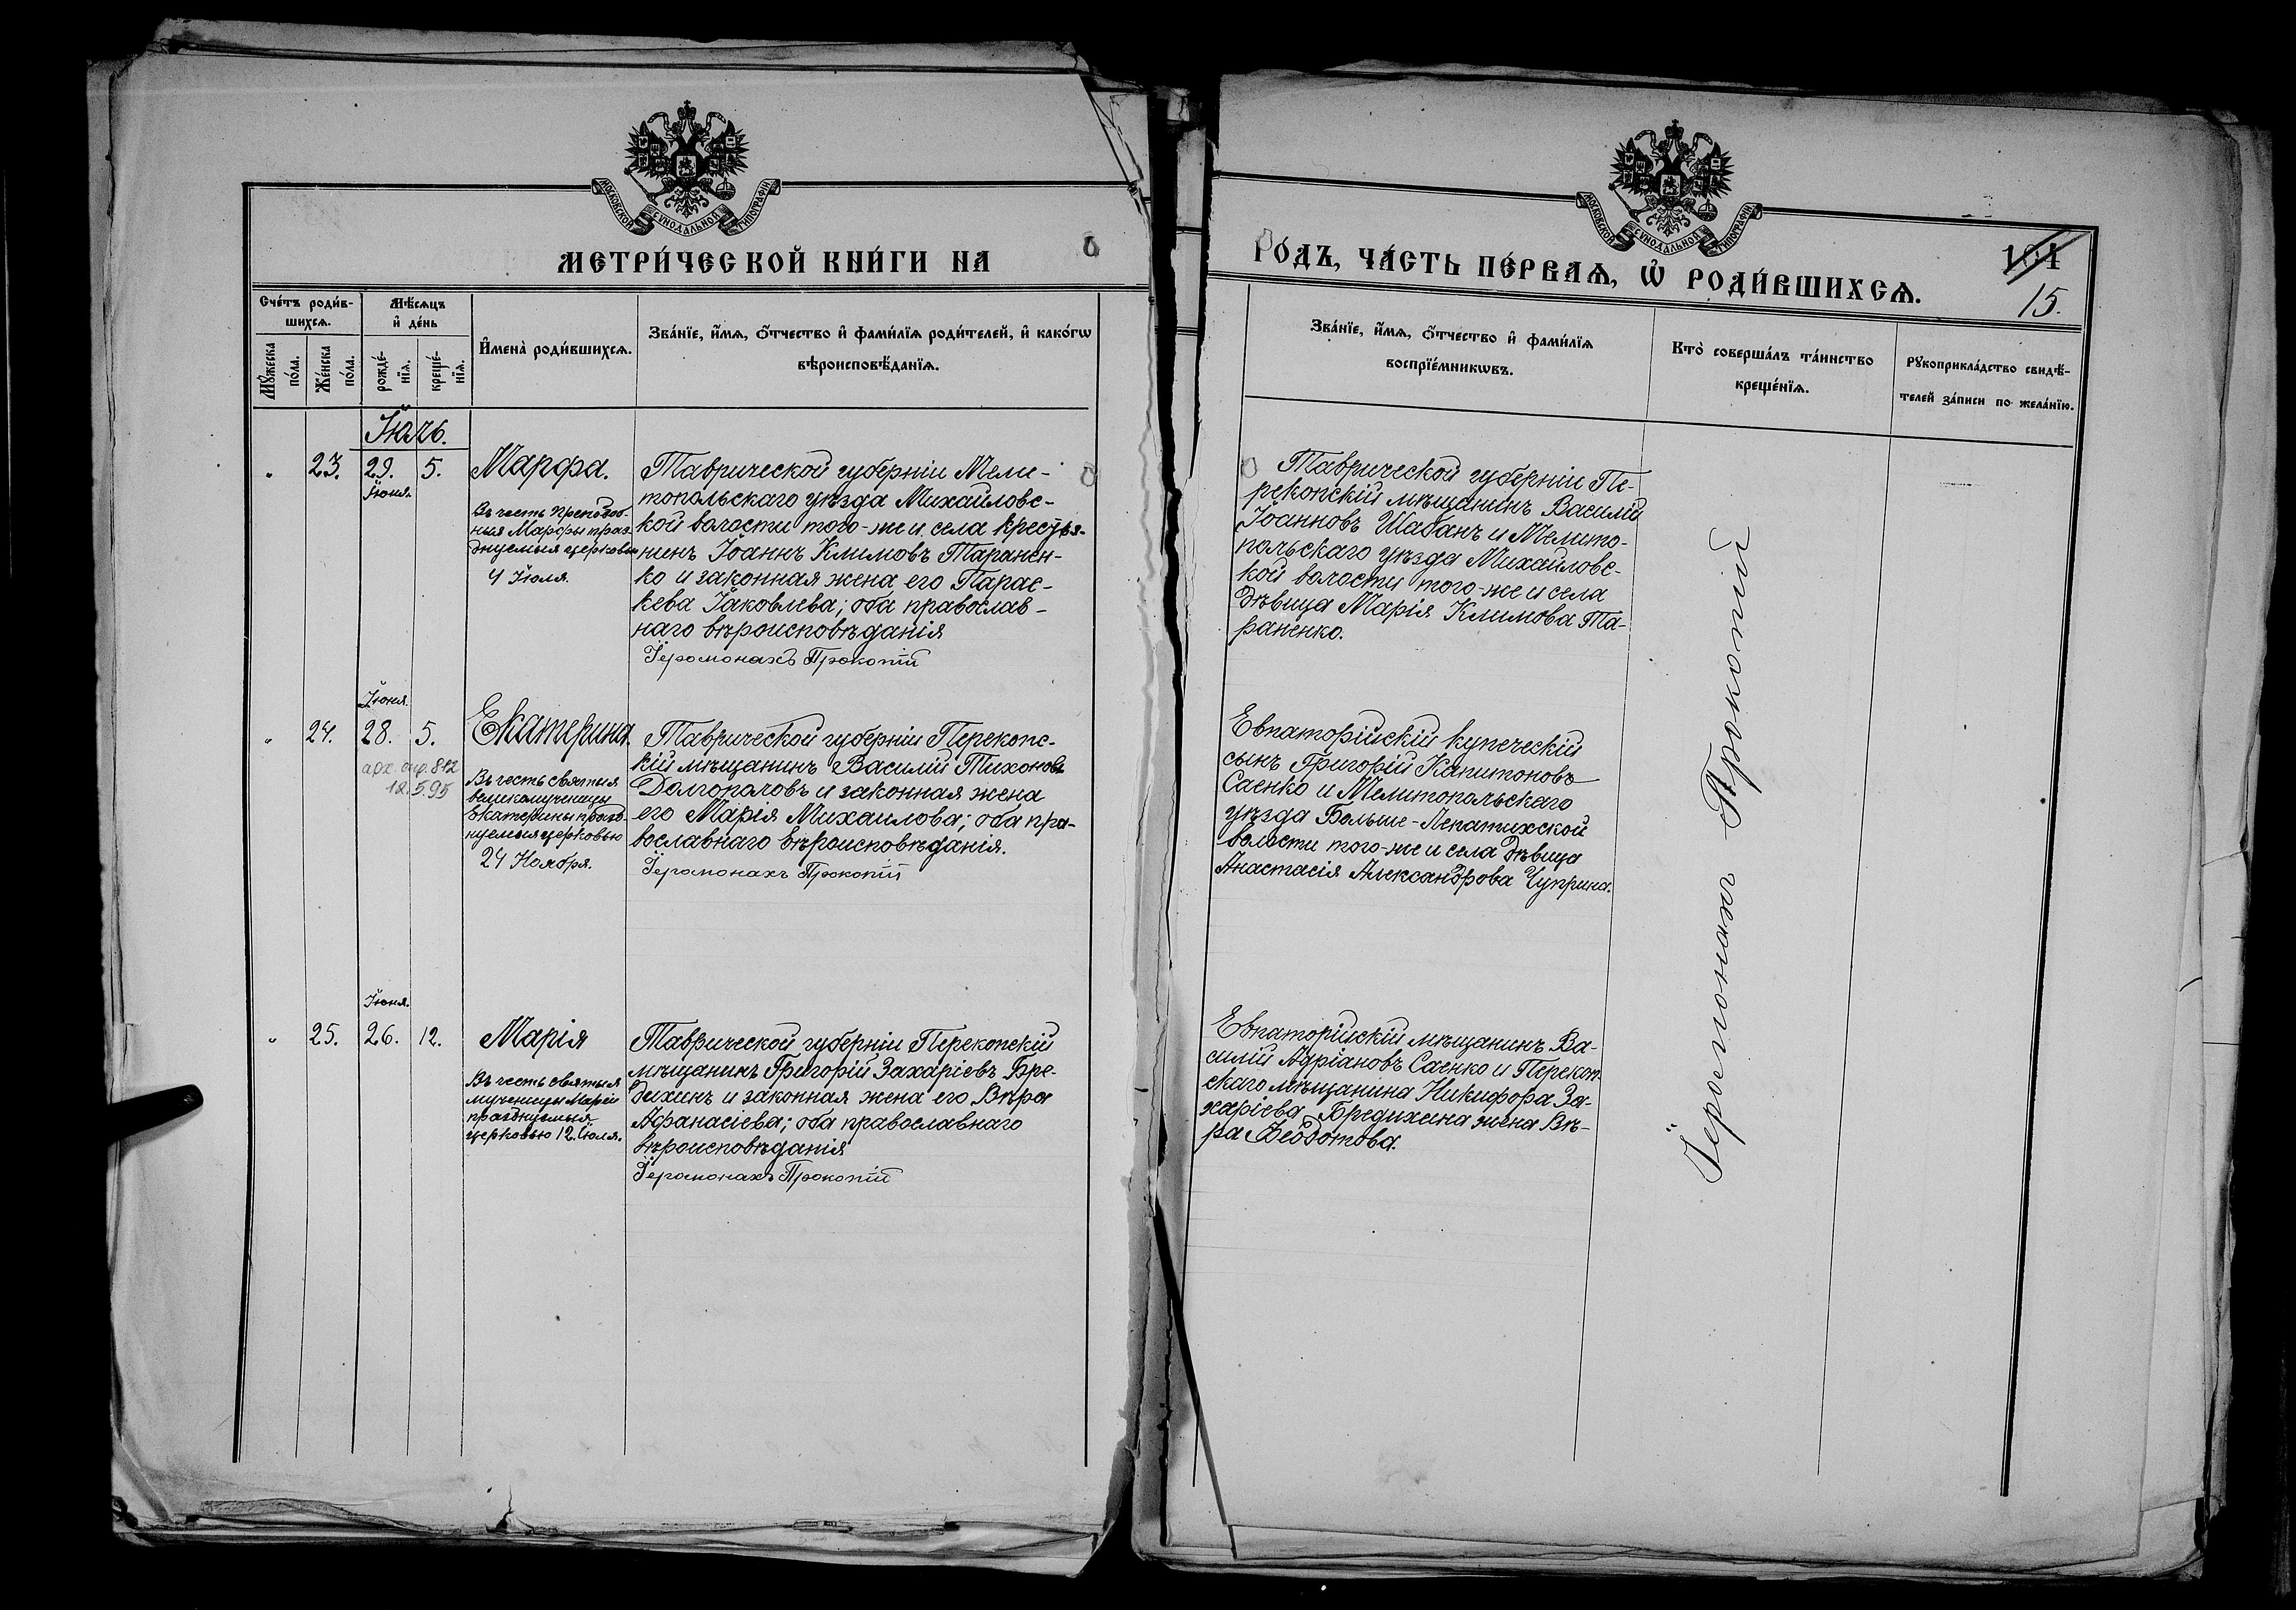 МОСКОВСКОЙ СѴНОДАЛЬНОЙ ТИПОГРАФІИ
МЕТРИ́ЧЕСКОЙ КНИ́ГИ НА
Сче́тъ роди́в-
шихсѧ.
Мѣ́сѧцъ
и҆ де́нь
Мꙋ́жеска
по́ла.
Же́нска
по́ла.
рожде́-
нїѧ.
креще́-
нїѧ.
И҆мена̀ роди́вшихсѧ.
Зва́нїе, и҆́мѧ, ѻ҆́тчество и҆ фами́лїѧ роди́телей, и҆ како́гѡ
вѣроисповѣ́данїѧ.
Іюль.
" 23. 29. 5. Марфа.
Іюня.
Въ честь преподоб-
ныя Марфы празд-
днуемыя церковью
4 Іюля.
Таврической губерніи Мели-
топольскаго уѣзда Михайловс-
кой волости того-же и села крестья-
нинъ Іоаннъ Климовъ Таранен-
ко и законная жена его Парас-
кева Іаковлева; оба православ-
наго вѣроисповѣданія
Іеромонахъ Прокопій
Іюня.
" 24. 28. 5. Екатерина.
арх. спр. 842
12.5.95
Въ честь святыя
великомученицы
Екатерины празд-
нуемыя церковью
24 Ноября.
Таврической губерніи Перекопс-
кій мѣщанинъ Василій Тихоновъ
Долгополовъ и законная жена
его Марія Михаилова; оба пра-
вославнаго вѣроисповѣданія.
Іеромонахъ Прокопій
Іюня.
" 25. 26. 12. Марія
Въ честь святыя
мученицы Маріи
празднуемыя
церковью 12 Іюля.
Таврической губерніи Перекопскій
мѣщанинъ Григорій Захаріевъ Бре-
дихинъ и законная жена его Вѣра
Афанасіева; оба православнаго
вѣроисповѣданія
Іеромонахъ Прокопій
МОСКОВСКОЙ СѴНОДАЛЬНОЙ ТИПОГРАФІИ
РОДЪ, ЧА́СТЬ ПЕ́РВАѦ, Ѽ РОДИ́ВШИХСѦ.
15.
Зва́нїе, и҆́мѧ, ѻ҆́тчество и҆ фами́лїѧ
воспрїе́мникѡвъ.
Кто̀ соверша́лъ та́инство
креще́нїѧ.
Рꙋкоприкла́дство свидѣ́-
телей за́писи по жела́нїю.
Таврической губерніи Пе-
рекопскій мѣщанинъ Василій
Іоанновъ Шабанъ и Мелито-
польскаго уѣзда Михайловс-
кой волости того-же и села
дѣвица Марія Климова Та-
раненко.
Евпаторійскій купеческій
сынъ Григорій Капитоновъ
Саенко и Мелитопольскаго
уѣзда Больше-Лепатихской
волости того-же и села дѣвица
Анастасія Александрова Чуприна.
Евпаторійскій мѣщанинъ Ва-
силій Адріановъ Саенко и Перекоп-
скаго мѣщанина Никифора За-
харіева Бредихина жена Вѣ-
ра Ѳеодотова.
Іеромонахъ Прокопій